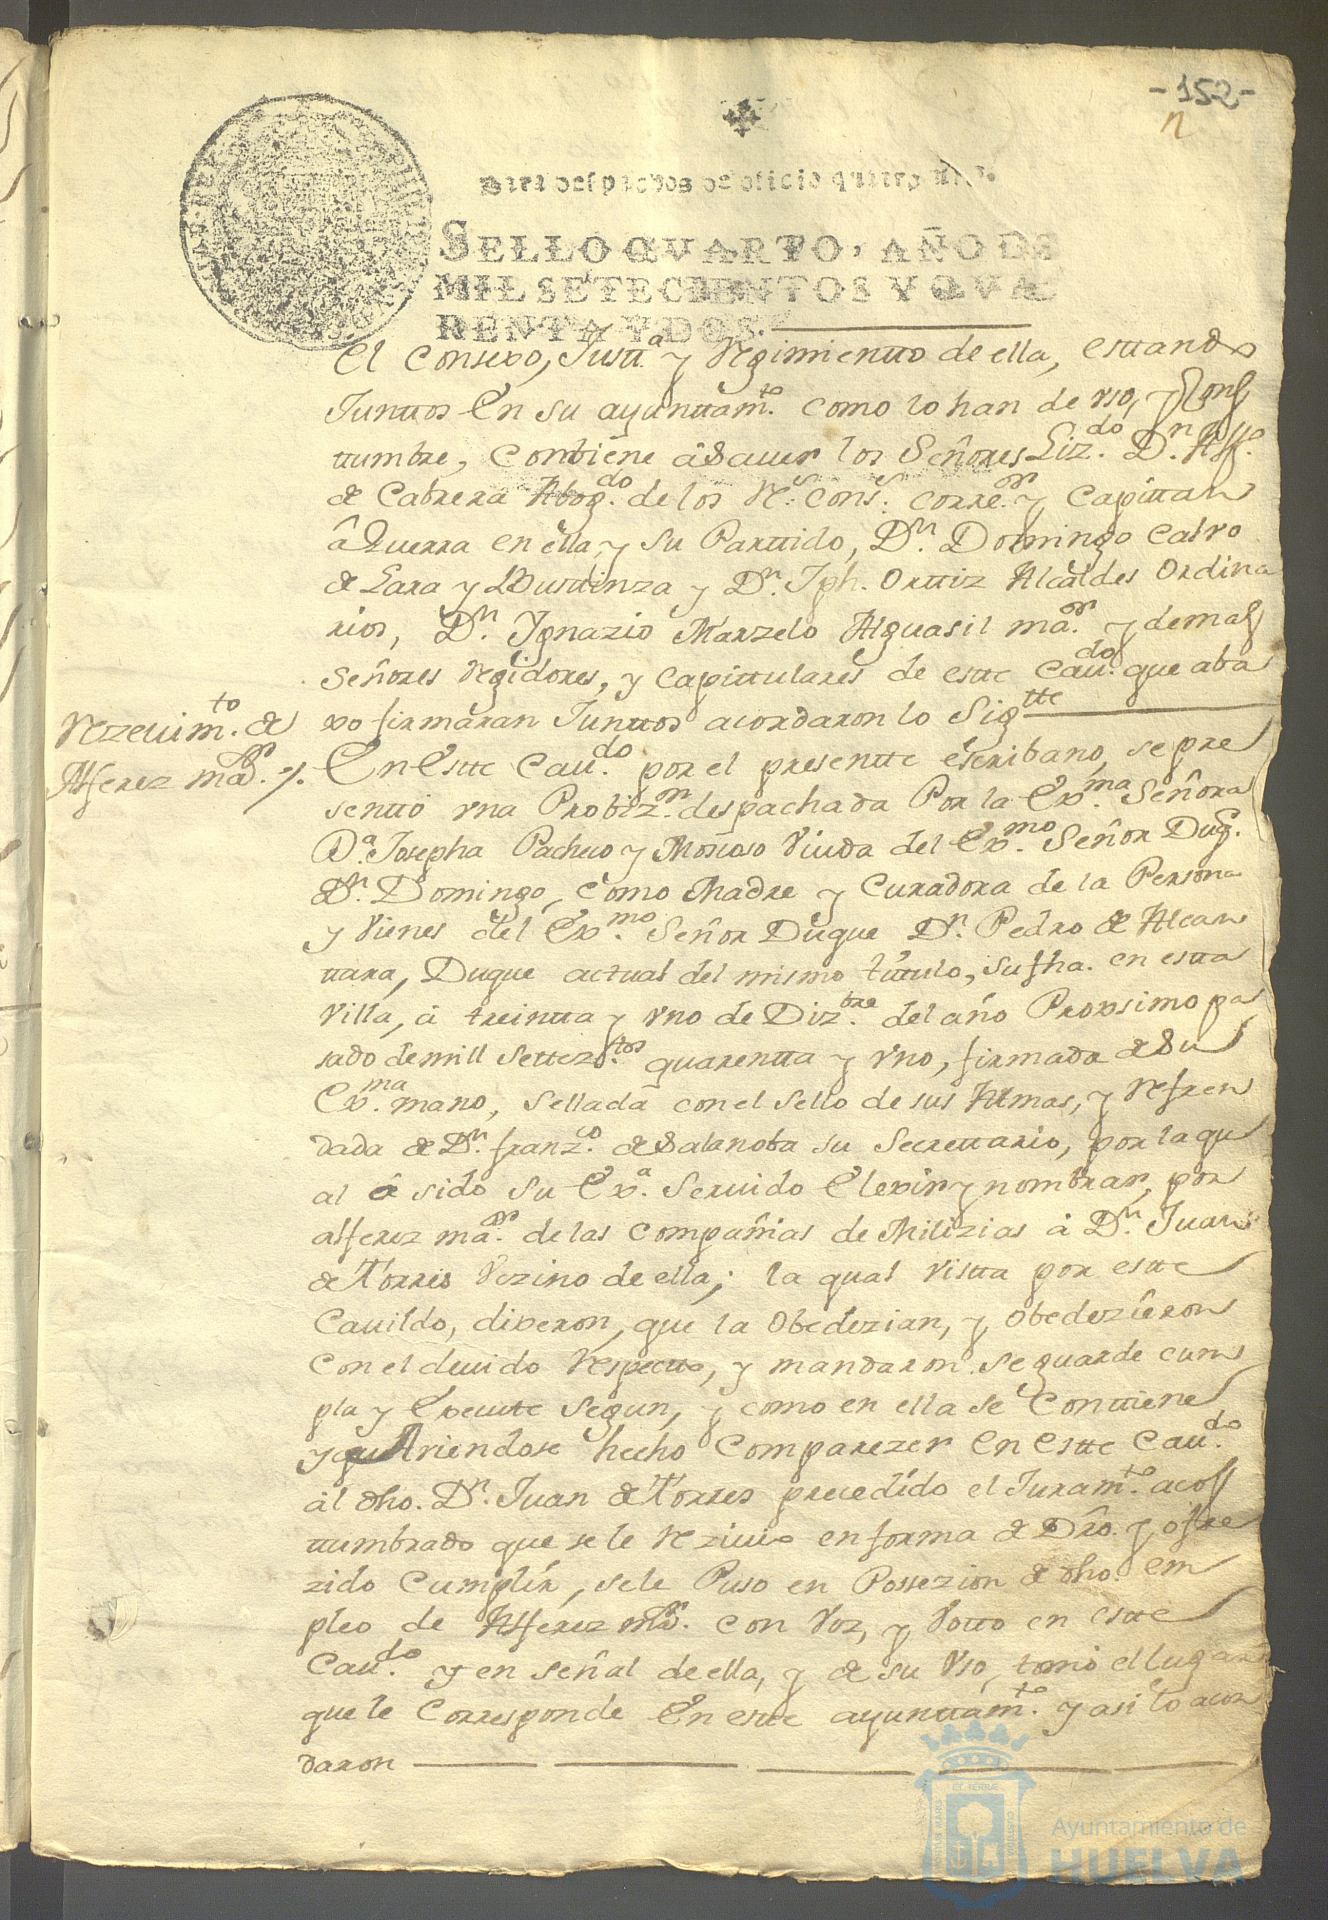 -152-
n
Para despachos de oficio quatro mrs.
SELLO QVARTO, AÑO DE
MIL SETECIENTOS Y QVA
RENTA Y DOS.
el Consexo, Justt.ª y Regimientto de ella, esttando
Junttos En su ayunttam.to como lo han de vso, y Cons
ttumbre, combiene â Sauer los Señores Liz.do D.n
de Cabrera Abog.do de los R.s Cons.s Corre.or y Capittan
â Guerra en ella, y su Parttido, D.n Domingo Calvo
de Lara y Busttinza y D.n Jph. Orttiz Alcaldes Ordina
rios, D.n Ygnazio Marzelo Alguasil ma.or y demas
Señores Regidores, y Capittulares de estte Cau.do que aba
xo firmaran Junttos acordaron lo Sig.tte
Rezeuim.to de
Alferez ma.or
En Estte Cau.do por el presentte escribano, se pre
senttó vna Probiz.on despachada Por la Ex.ma Señora
D.ª Josepha Pacheco y Moscoso Viuda del Ex.mo Señor Duq.e
D.n Domingo, como Madre y Curadora de la Persona
y Vienes del Ex.mo Señor Duque D.n Pedro de Alcan
ttara, Duque actual del mismo títtulo, su fha. en estta
Villa, â treintta y vno de Diz.bre del año Proxsimo pa
sado de mill settez.tos quarentta y vno, firmada de Su
Ex.ma mano, Sellada con el Sello de sus Armas, y Refren
dada de D.n Franz.co de Salanoba su Secrettario, por la qu
al â sido Su Ex.ª Seruido Elexir y nombrar, por
alferez ma.or de las Compañias de Milizias â D.n Juan
de Torres Vezino de ella; la qual Vistta por estte
Cauildo, dixeron, que la Obedezian, y obedezieron
con el deuido Respectto, y mandaron se guarde cum
pla y Execute Segun, y como en ella se Conttiene
y Auiendose hecho Comparezer En Estte Cau.do
al dho. D.n Juan de Torres precedido el Juram.to acos
ttumbrado que se le Reziuio en forma de Dro. y ofre
zido Cumplir, se le Puso en Possezion de dho. em
pleo de Alferez ma.or con Voz, y Votto en estte
Cau.do y en señal de ella, y de su Vso, tomó el lugar
que le Corresponde En estte ayunttam.to y asi lo acor
daron
Ayuntamiento de
HUELVA